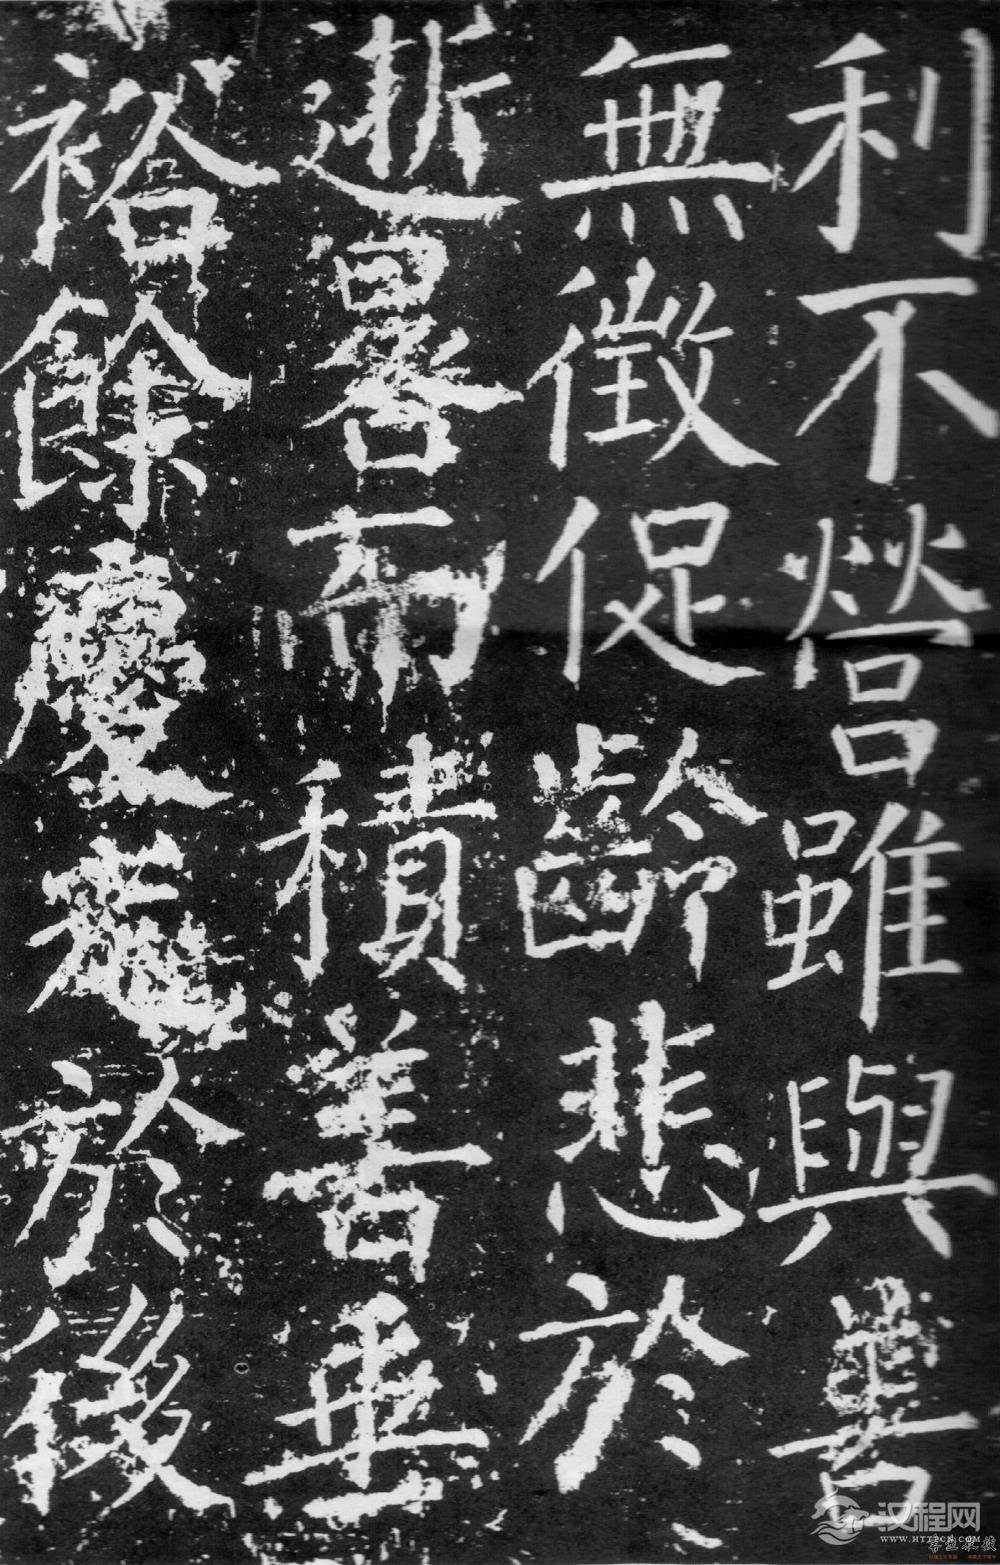 利不營雖與善
無徵促齡悲於
逝晷而積善垂
裕餘慶於後
汉程网
WWW.HTTPCN.COM